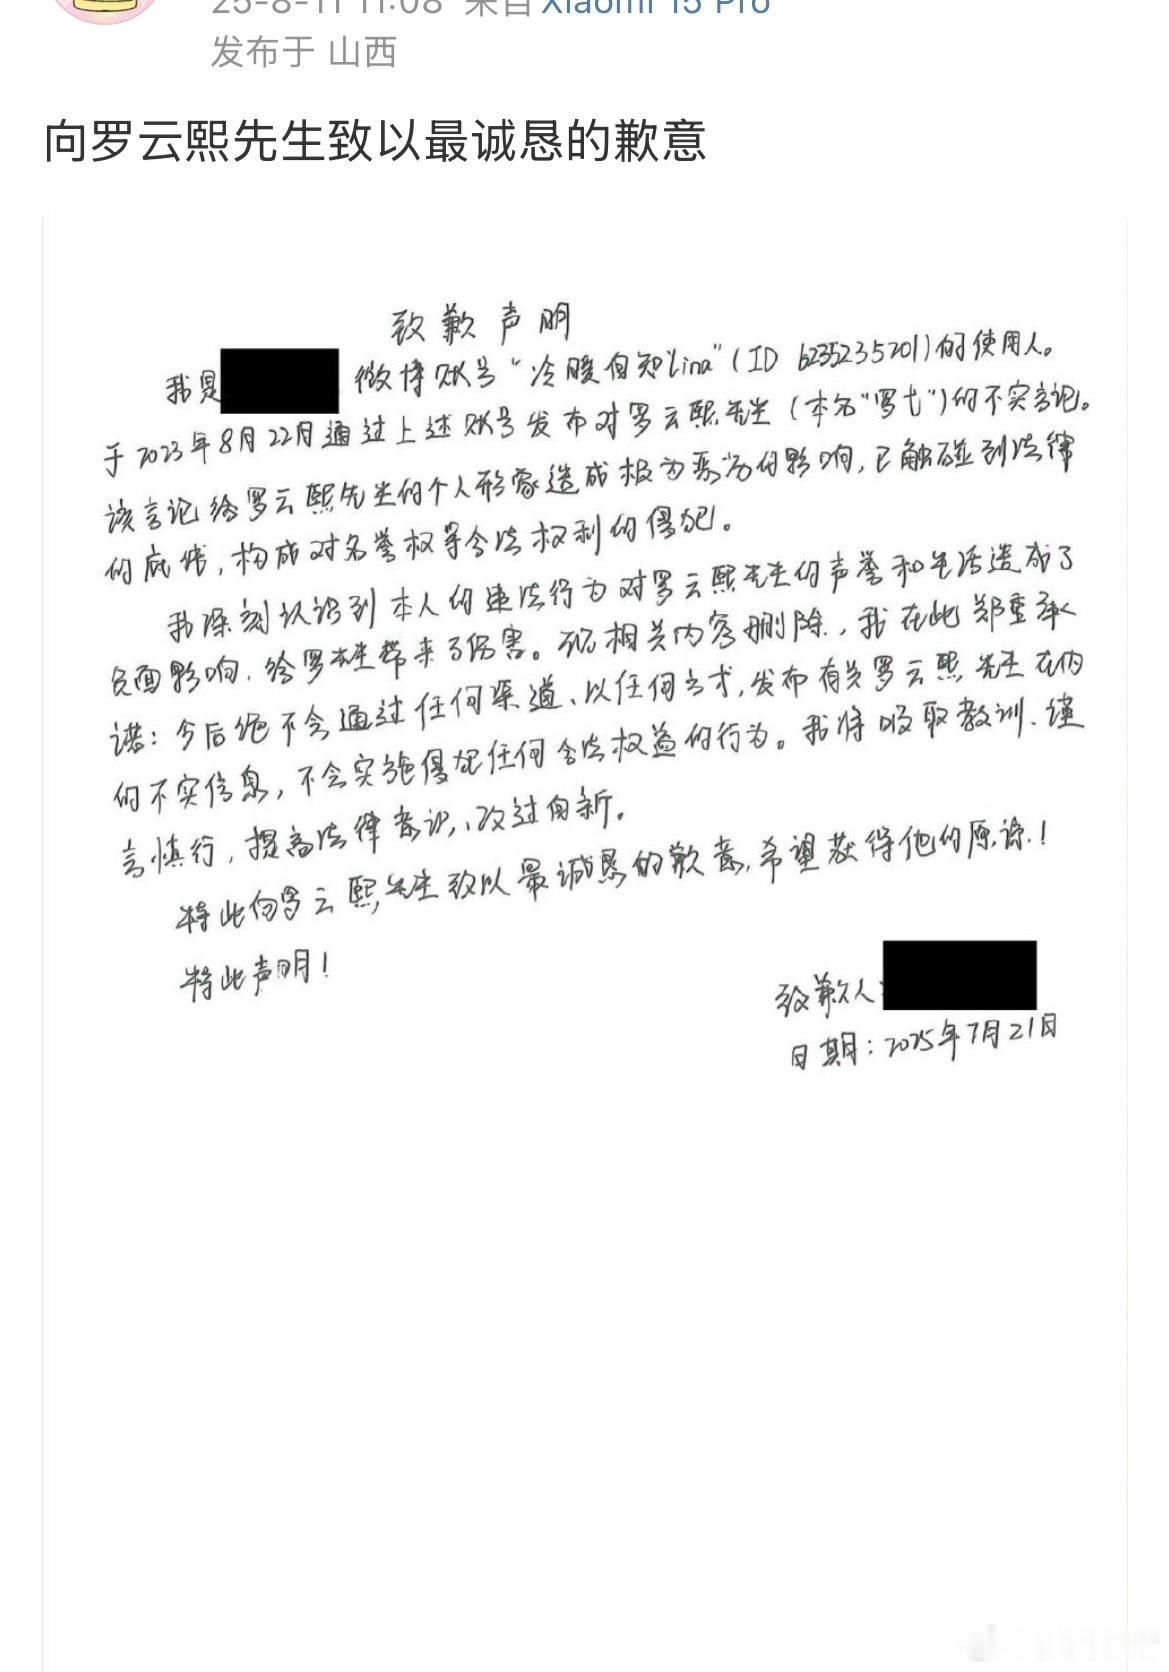 25-8-11 11:08 来自 Xiaomi 15 Pro
发布于 山西
向罗云熙先生致以最诚恳的歉意
致歉声明
我是 微博账号“冷暖自知lina”(ID 6235235201)的使用人。
于2023年8月22日通过上述账号发布对罗云熙先生(本名“罗弋”)的不实言论。
该言论给罗云熙先生的个人形象造成极为恶劣的影响,已触碰到法律
的底线,构成对名誉权等合法权利的侵犯。
我深刻认识到本人的违法行为对罗云熙先生的声誉和生活造成了
负面影响,给罗先生带来了伤害。现相关内容删除,我在此郑重承
诺:今后绝不会通过任何渠道、以任何方式,发布有关罗云熙先生在内
的不实信息,不会实施侵犯任何合法权益的行为。我将吸取教训、谨
言慎行,提高法律意识、改过自新。
特此向罗云熙先生致以最诚恳的歉意,希望获得他的原谅!
特此声明!
致歉人:
日期:2025年7月21日